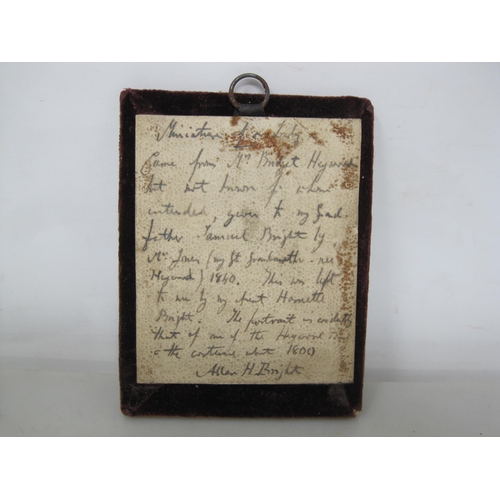 Miniature of a lady
Came from Mrs Bridget Heywood
but not known for whom
intended, given to my Grand-
father Samuel Bright by
Mrs Jones (my Gt Grandmother - nee
Heywood) 1840. This was left
to me by my Aunt Harriette
Bright. The portrait is evidently
that of one of the Heywood
the costume about 1800
Allan H. Bright